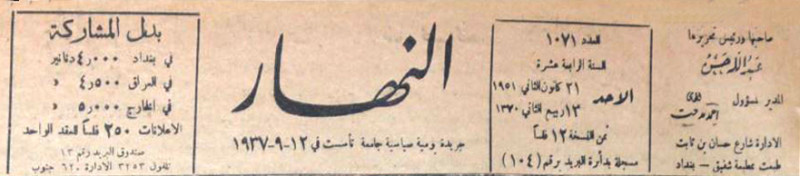 صاحبها ورئيس تحريرها
عبد الله حسين
المدير المسؤول
الادارة شارع حسان بن ثابت
طبعت بمطبعة شفيق – بغداد
العدد ١٠٧١
السنة الرابعة عشرة
الاحد
٢١ كانون الثاني ١٩٥١
١٣ ربيع الثاني ١٣٧٠
ثمن النسخة ١٢ فلساً
مسجلة بدائرة البريد برقم (١٠٤)
النهار
جريدة يومية سياسية جامعة تأسست في ١٢-٩-١٩٣٧
بدل المشاركة
في بغداد ٤٫٠٠٠ دنانير
في العراق ٤٫٥٠٠ «
في الخارج ٥٫٠٠٠ «
الاعلانات ٢٥٠ فلساً للعقد الواحد
صندوق البريد رقم ١٣
تلفون ٣٢٥٣ الادارة ٦٢٠ جنوب